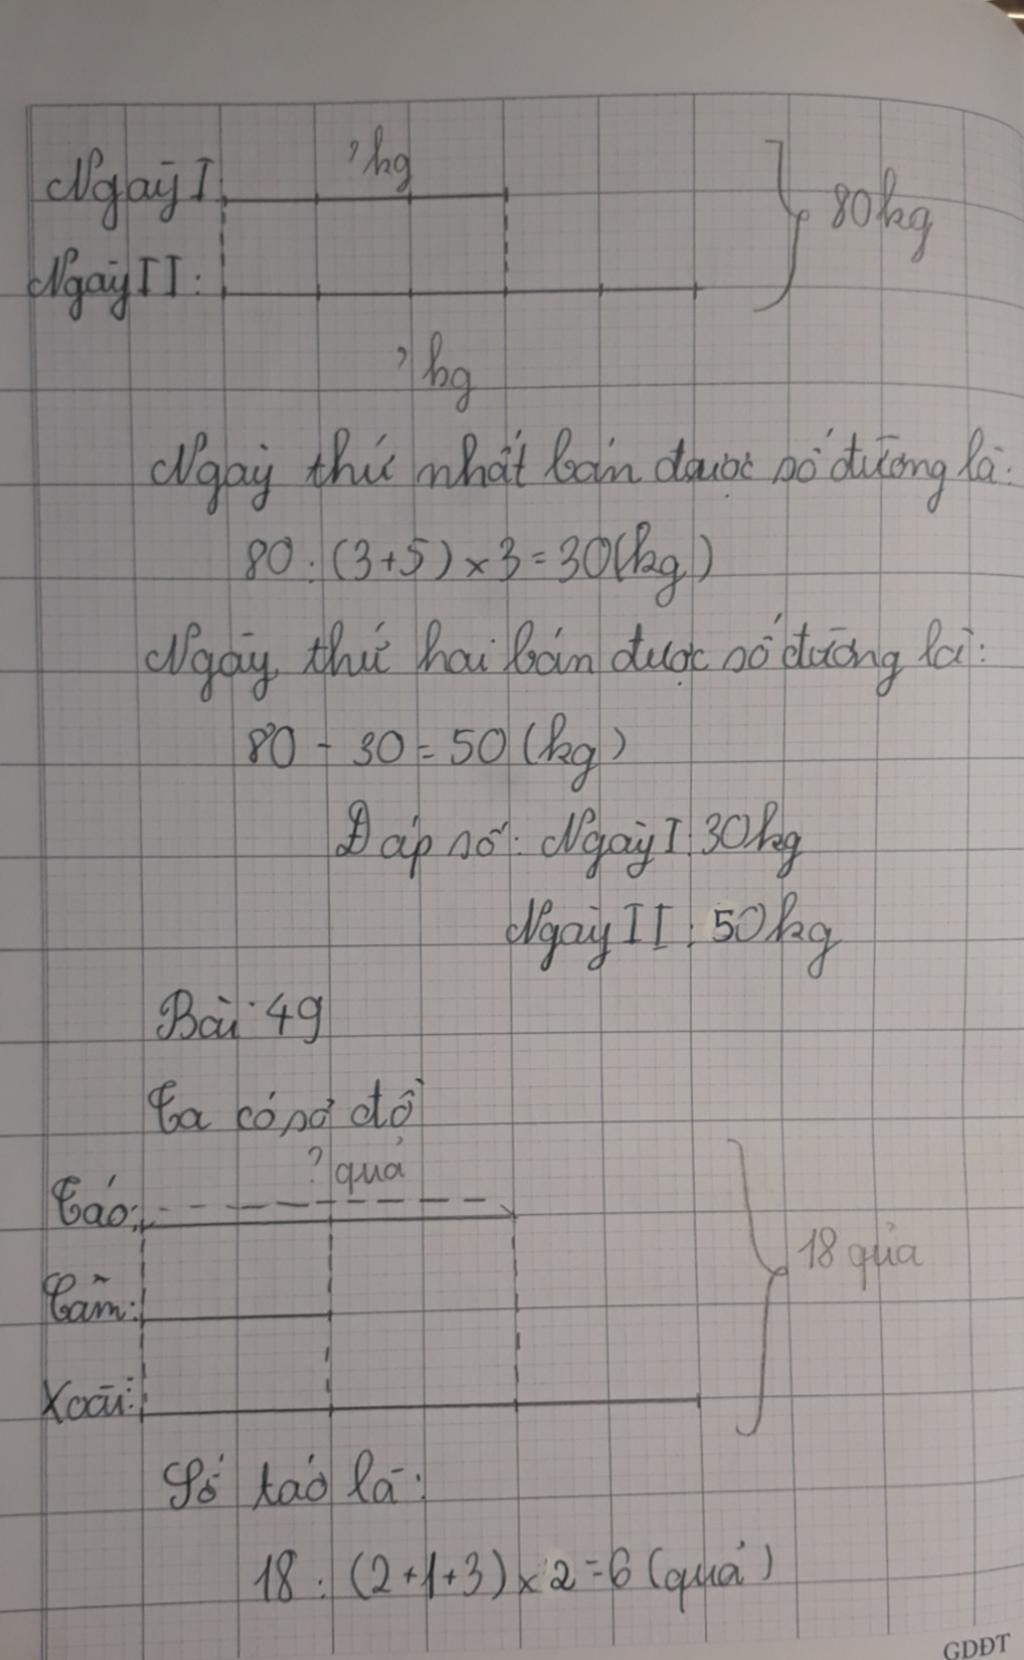 ? kg
Ngày I
80kg
Ngày II:
? kg
Ngày thứ nhất bán được số đường là:
80 : (3+5) x 3 = 30(kg)
Ngày thứ hai bán được số đường là:
80 - 30 = 50 (kg)
Đáp số: Ngày I: 30kg
Ngày II: 50kg
Bài 49
Ta có sơ đồ
? quả
Táo:
18 quả
Cam:
Xoài:
Số táo là:
18 : (2+1+3) x 2 = 6 (quả)
GDĐT